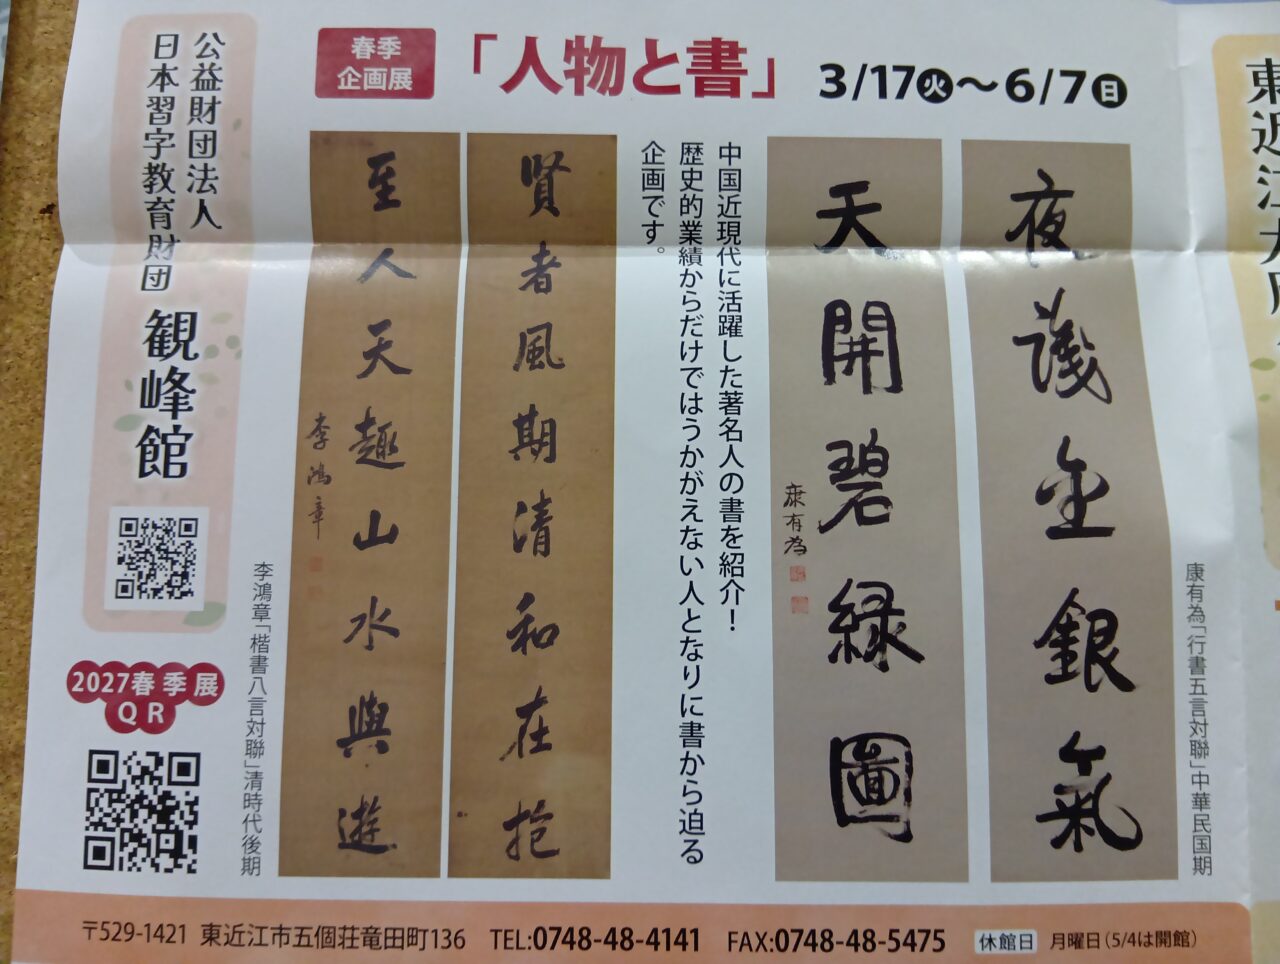 公益財団法人
日本習字教育財団
観峰館
2027春季展
QR
春季
企画展
「人物と書」
3/17火〜6/7日
夜議金銀氣
天開碧緑圖
康有為
康有為「行書五言対聯」中華民国期
中国近現代に活躍した著名人の書を紹介！
歴史的業績からだけではうかがえない人となりに書から迫る
企画です。
賢者風期清和在抱
至人天趣山水與遊
李鴻章
李鴻章「楷書八言対聯」清時代後期
〒529-1421 東近江市五個荘竜田町136 TEL:0748-48-4141 FAX:0748-48-5475 休館日 月曜日（5/4は開館）
東近江大凧